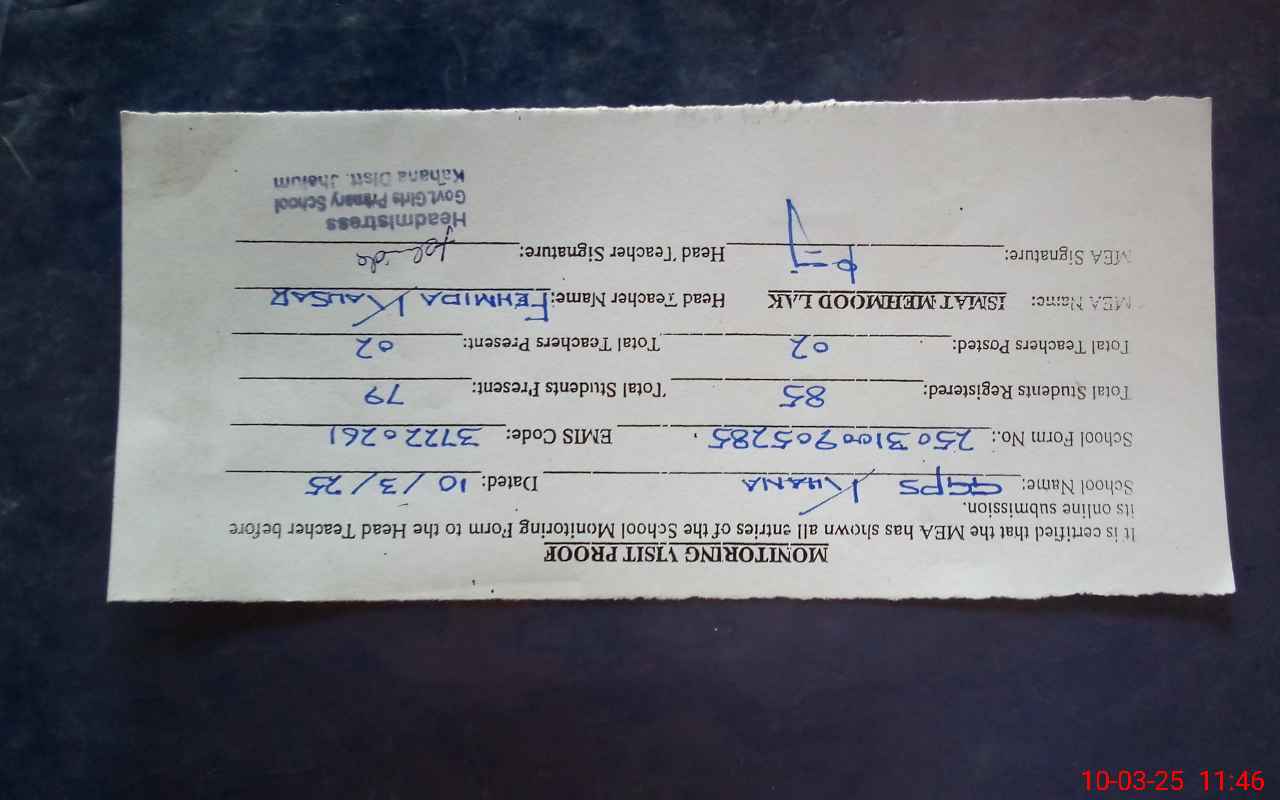 MONITORING VISIT PROOF
It is certified that the MEA has shown all entries of the School Monitoring Form to the Head Teacher before
its online submission.
School Name: GGPS KHANA Dated: 10/3/25
School Form No.: 2503100905285 EMIS Code: 37220261
Total Students Registered: 85 Total Students Present: 79
Total Teachers Posted: 02 Total Teachers Present: 02
MEA Name: ISMAT MEHMOOD LAK Head Teacher Name: FEHMIDA KAUSAR
MEA Signature: Head Teacher Signature:
Headmistress
Govt. Girls Primary School
Kahana Distt. Jhelum
10-03-25 11:46